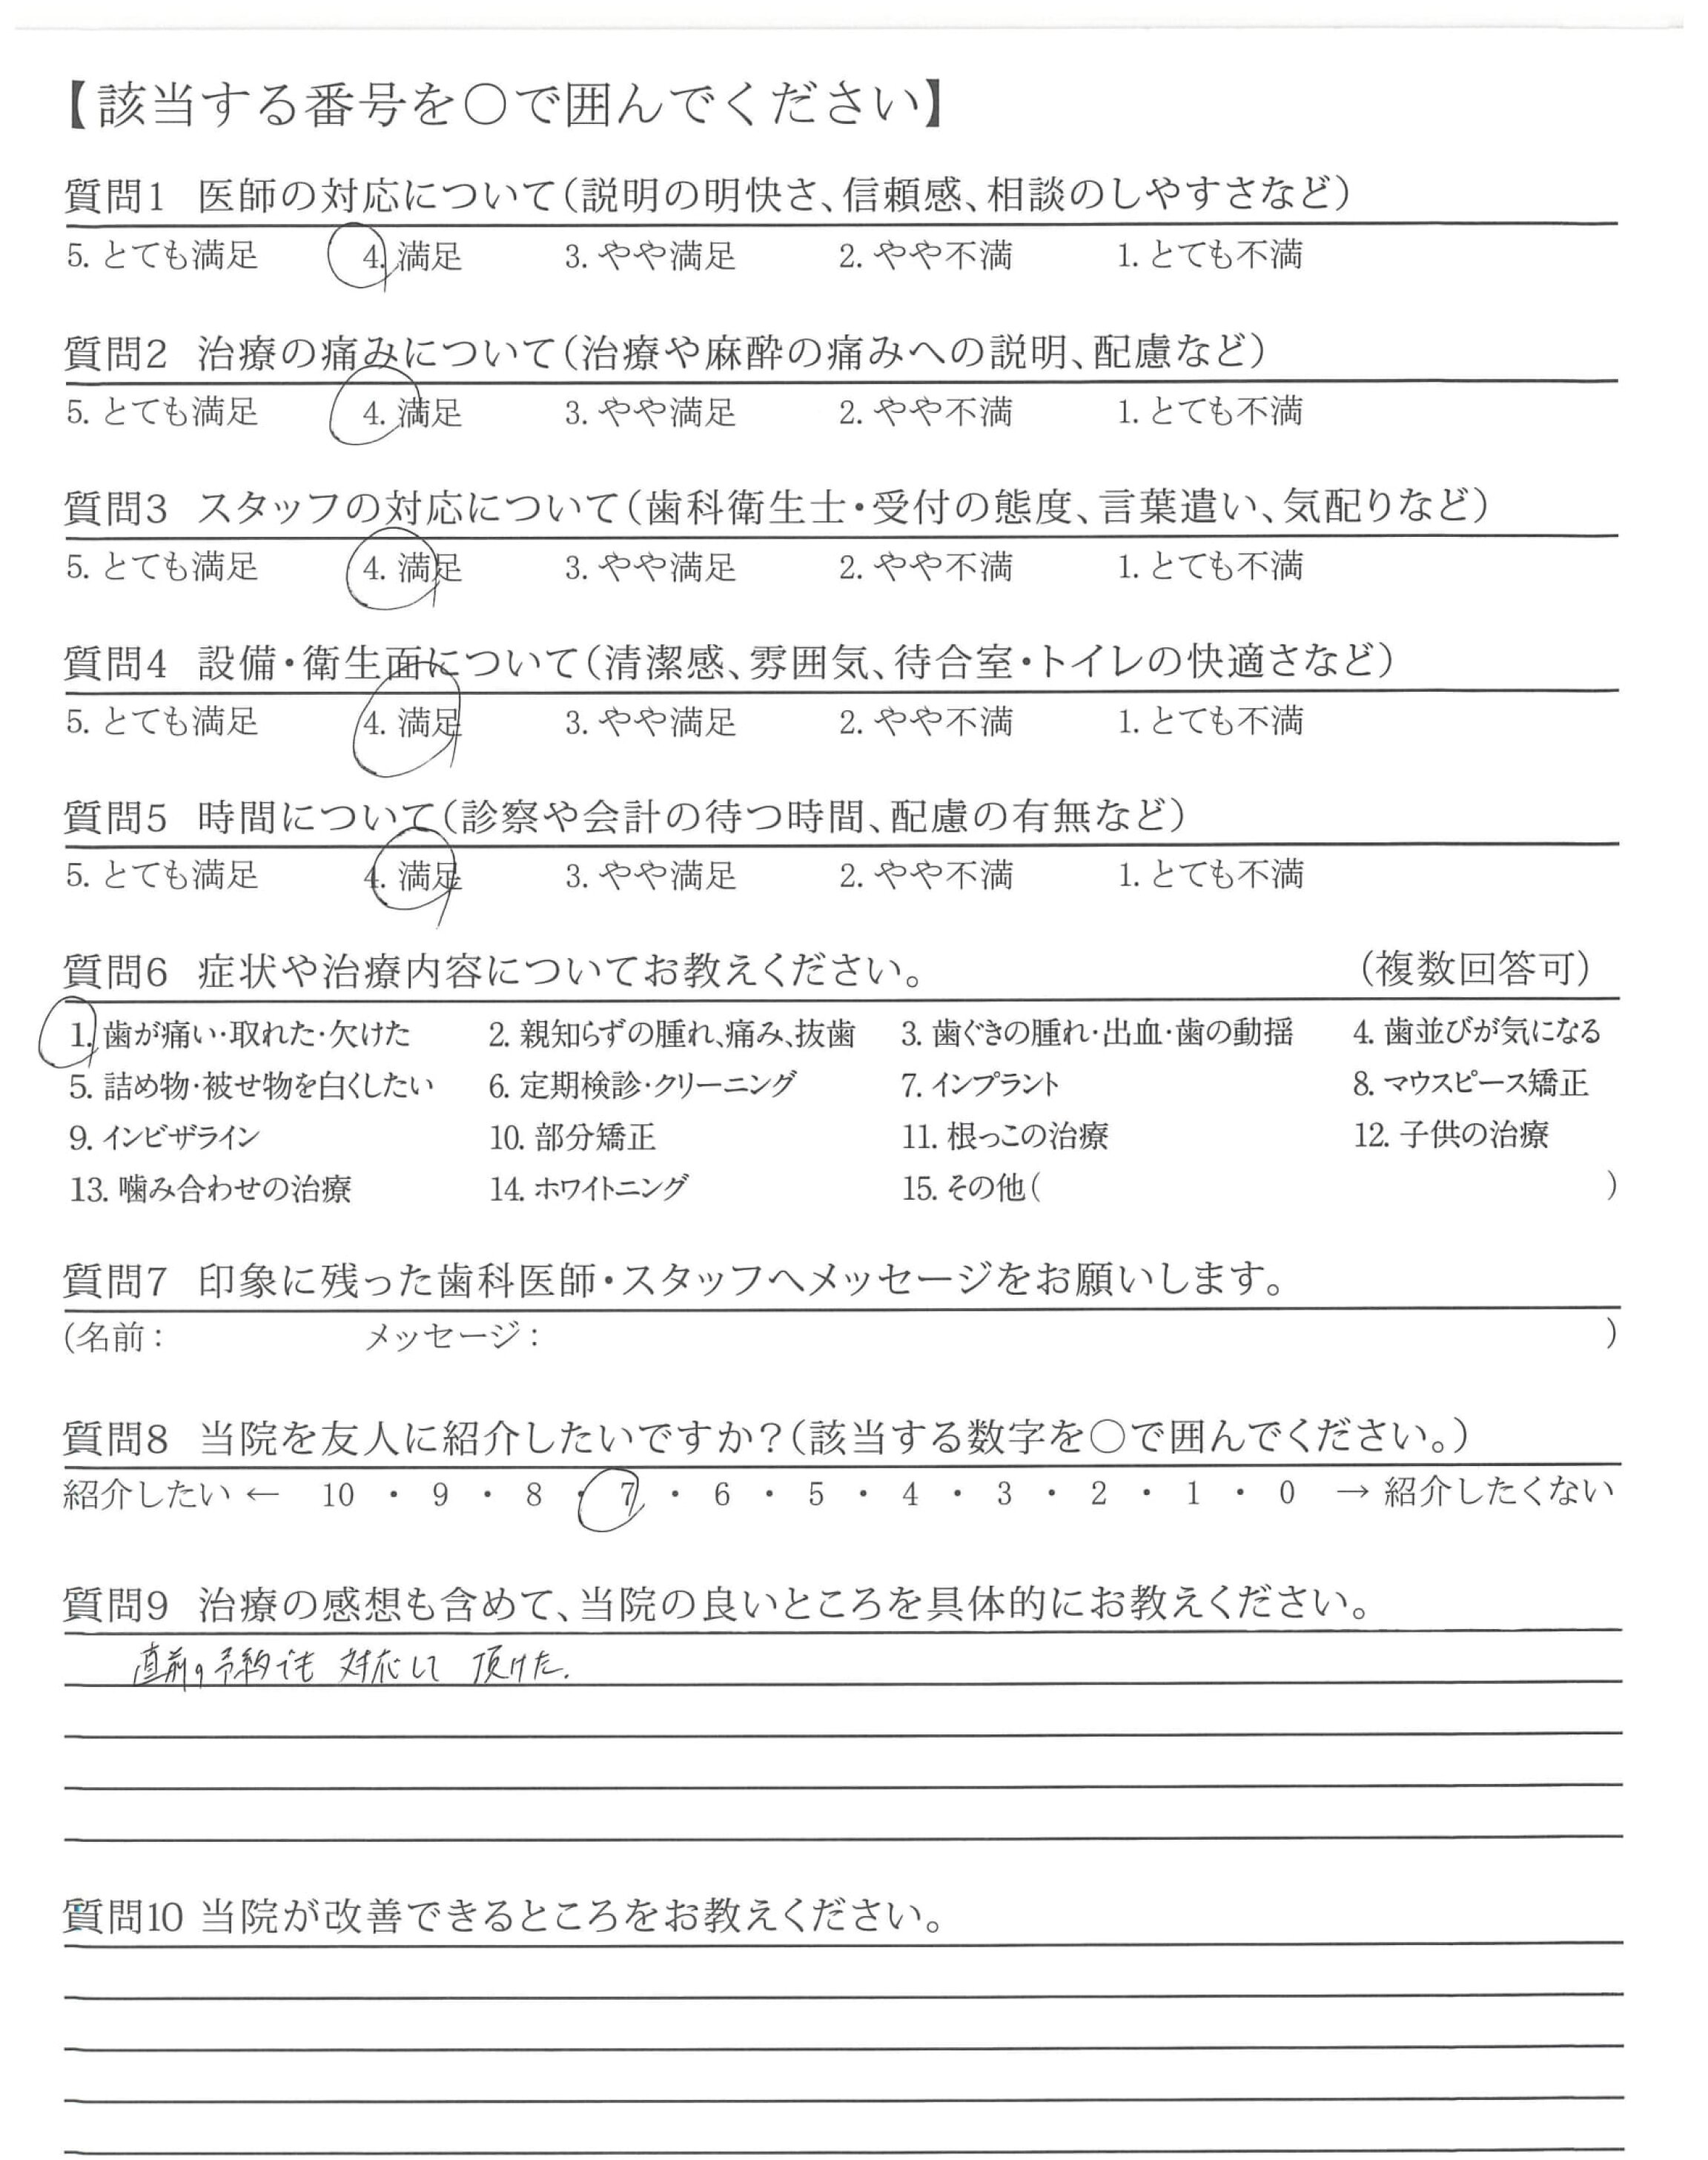 【該当する番号を○で囲んでください】
質問1 医師の対応について(説明の明快さ、信頼感、相談のしやすさなど)
5. とても満足 4. 満足 3. やや満足 2. やや不満 1. とても不満
質問2 治療の痛みについて(治療や麻酔の痛みへの説明、配慮など)
5. とても満足 4. 満足 3. やや満足 2. やや不満 1. とても不満
質問3 スタッフの対応について(歯科衛生士・受付の態度、言葉遣い、気配りなど)
5. とても満足 4. 満足 3. やや満足 2. やや不満 1. とても不満
質問4 設備・衛生面について(清潔感、雰囲気、待合室・トイレの快適さなど)
5. とても満足 4. 満足 3. やや満足 2. やや不満 1. とても不満
質問5 時間について(診察や会計の待つ時間、配慮の有無など)
5. とても満足 4. 満足 3. やや満足 2. やや不満 1. とても不満
質問6 症状や治療内容についてお教えください。 (複数回答可)
1. 歯が痛い・取れた・欠けた 2. 親知らずの腫れ、痛み、抜歯 3. 歯ぐきの腫れ・出血・歯の動揺 4. 歯並びが気になる
5. 詰め物・被せ物を白くしたい 6. 定期検診・クリーニング 7. インプラント 8. マウスピース矯正
9. インビザライン 10. 部分矯正 11. 根っこの治療 12. 子供の治療
13. 噛み合わせの治療 14. ホワイトニング 15. その他( )
質問7 印象に残った歯科医師・スタッフへメッセージをお願いします。
(名前: メッセージ: )
質問8 当院を友人に紹介したいですか?(該当する数字を○で囲んでください。)
紹介したい ← 10 ・ 9 ・ 8 ・ 7 ・ 6 ・ 5 ・ 4 ・ 3 ・ 2 ・ 1 ・ 0 → 紹介したくない
質問9 治療の感想も含めて、当院の良いところを具体的にお教えください。
直前の予約でも 対応して 頂けた.
質問10 当院が改善できるところをお教えください。